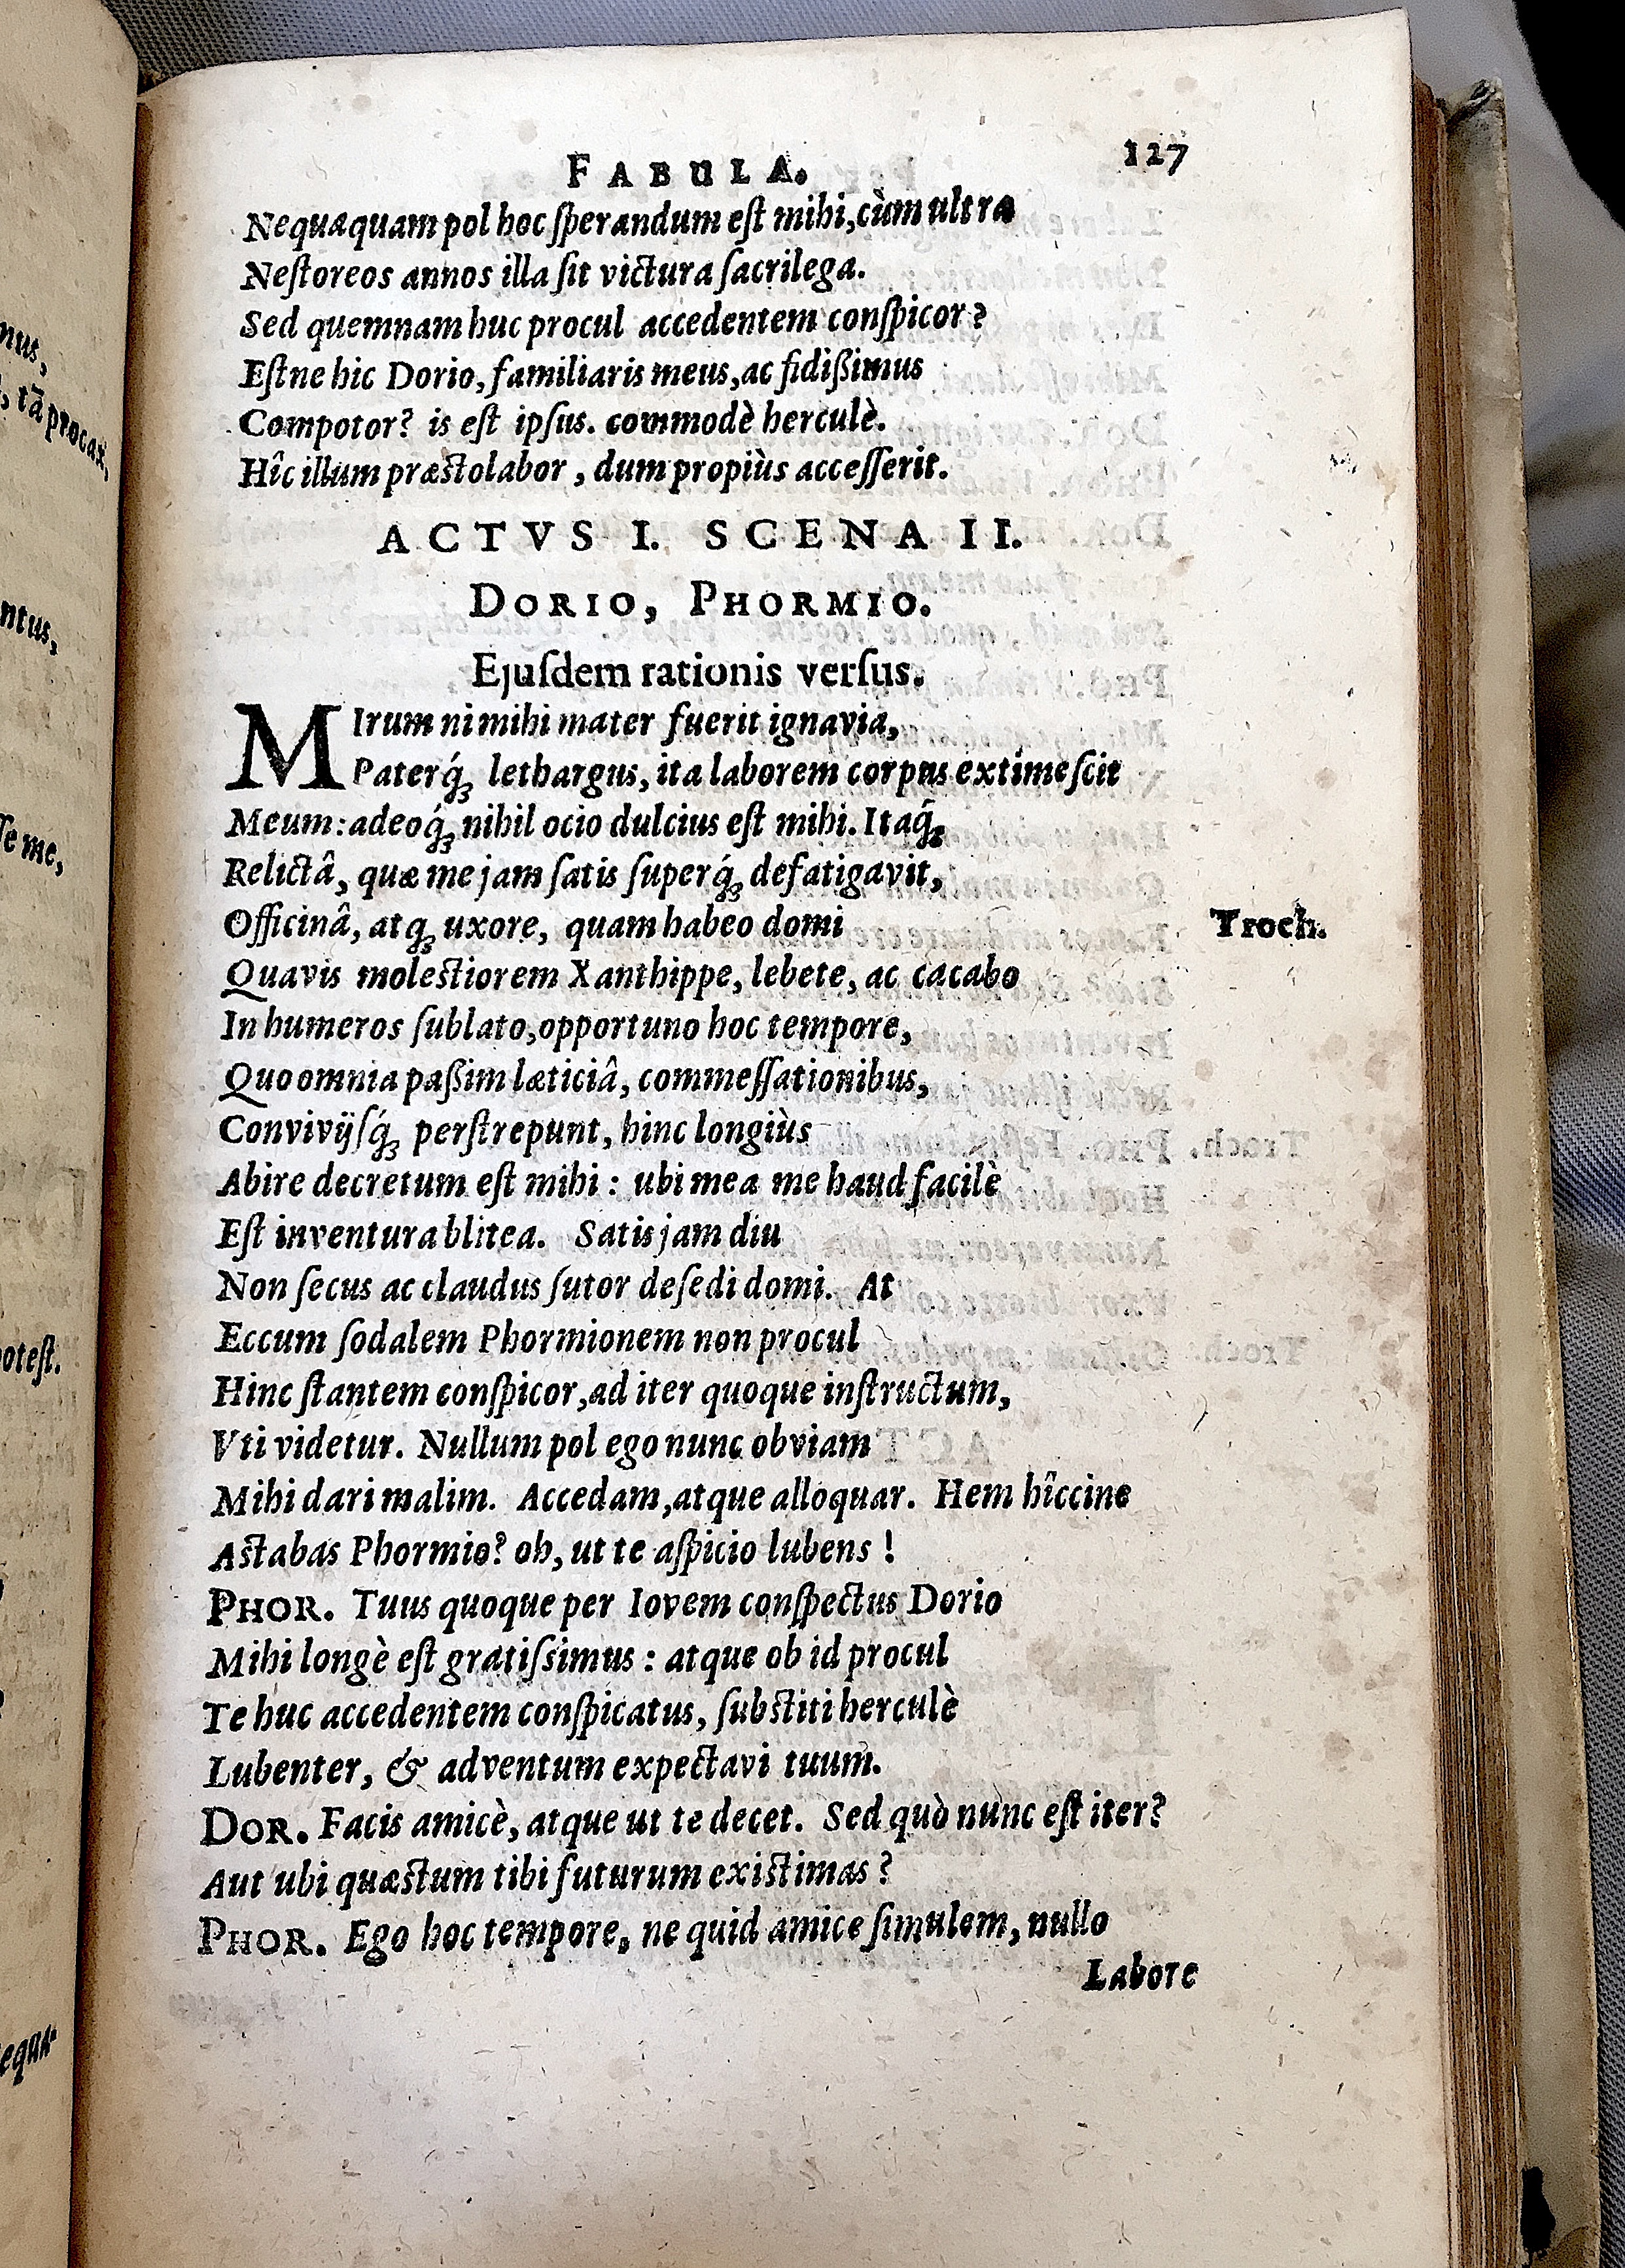 FABULA. 127
Nequaquam pol hoc ſperandum eſt mihi, cùm ultra
Neſtoreos annos illa ſit victura ſacrilega.
Sed quemnam huc procul accedentem conſpicor?
Eſtne hic Dorio, familiaris meus, ac fidißimus
Compotor? is eſt ipſus. commodè herculè.
Hîc illum præſtolabor, dum propiùs acceſſerit.
ACTVS I. SCENA II.
DORIO, PHORMIO.
Ejuſdem rationis verſus.
MIrum ni mihi mater fuerit ignavia,
Paterq́ꝫ lethargus, ita laborem corpus extimeſcit
Meum: adeoq́ꝫ nihil ocio dulcius eſt mihi. Itaq́ꝫ
Relictâ, quæ me jam ſatis ſuperq́ꝫ defatigavit,
Officinâ, atqꝫ uxore, quam habeo domi Troch.
Quavis moleſtiorem Xanthippe, lebete, ac cacabo
In humeros ſublato, opportuno hoc tempore,
Quo omnia paßim læticiâ, commeſſationibus,
Convivijſq́ꝫ perſtrepunt, hinc longiùs
Abire decretum eſt mihi: ubi mea me haud facilè
Eſt inventura blitea. Satis jam diu
Non ſecus ac claudus ſutor deſedi domi. At
Eccum ſodalem Phormionem non procul
Hinc ſtantem conſpicor, ad iter quoque inſtructum,
Vti videtur. Nullum pol ego nunc obviam
Mihi dari malim. Accedam, atque alloquar. Hem hîccine
Aſtabas Phormio? oh, ut te aſpicio lubens!
PHOR. Tuus quoque per Iovem conſpectus Dorio
Mihi longè eſt gratiſsimus: atque ob id procul
Te huc accedentem conſpicatus, ſubſtiti herculè
Lubenter, & adventum expectavi tuum.
DOR. Facis amicè, atque ut te decet. Sed quò nunc eſt iter?
Aut ubi quæſtum tibi futurum exiſtimas?
PHOR. Ego hoc tempore, ne quid amice ſimulem, nullo
Labore